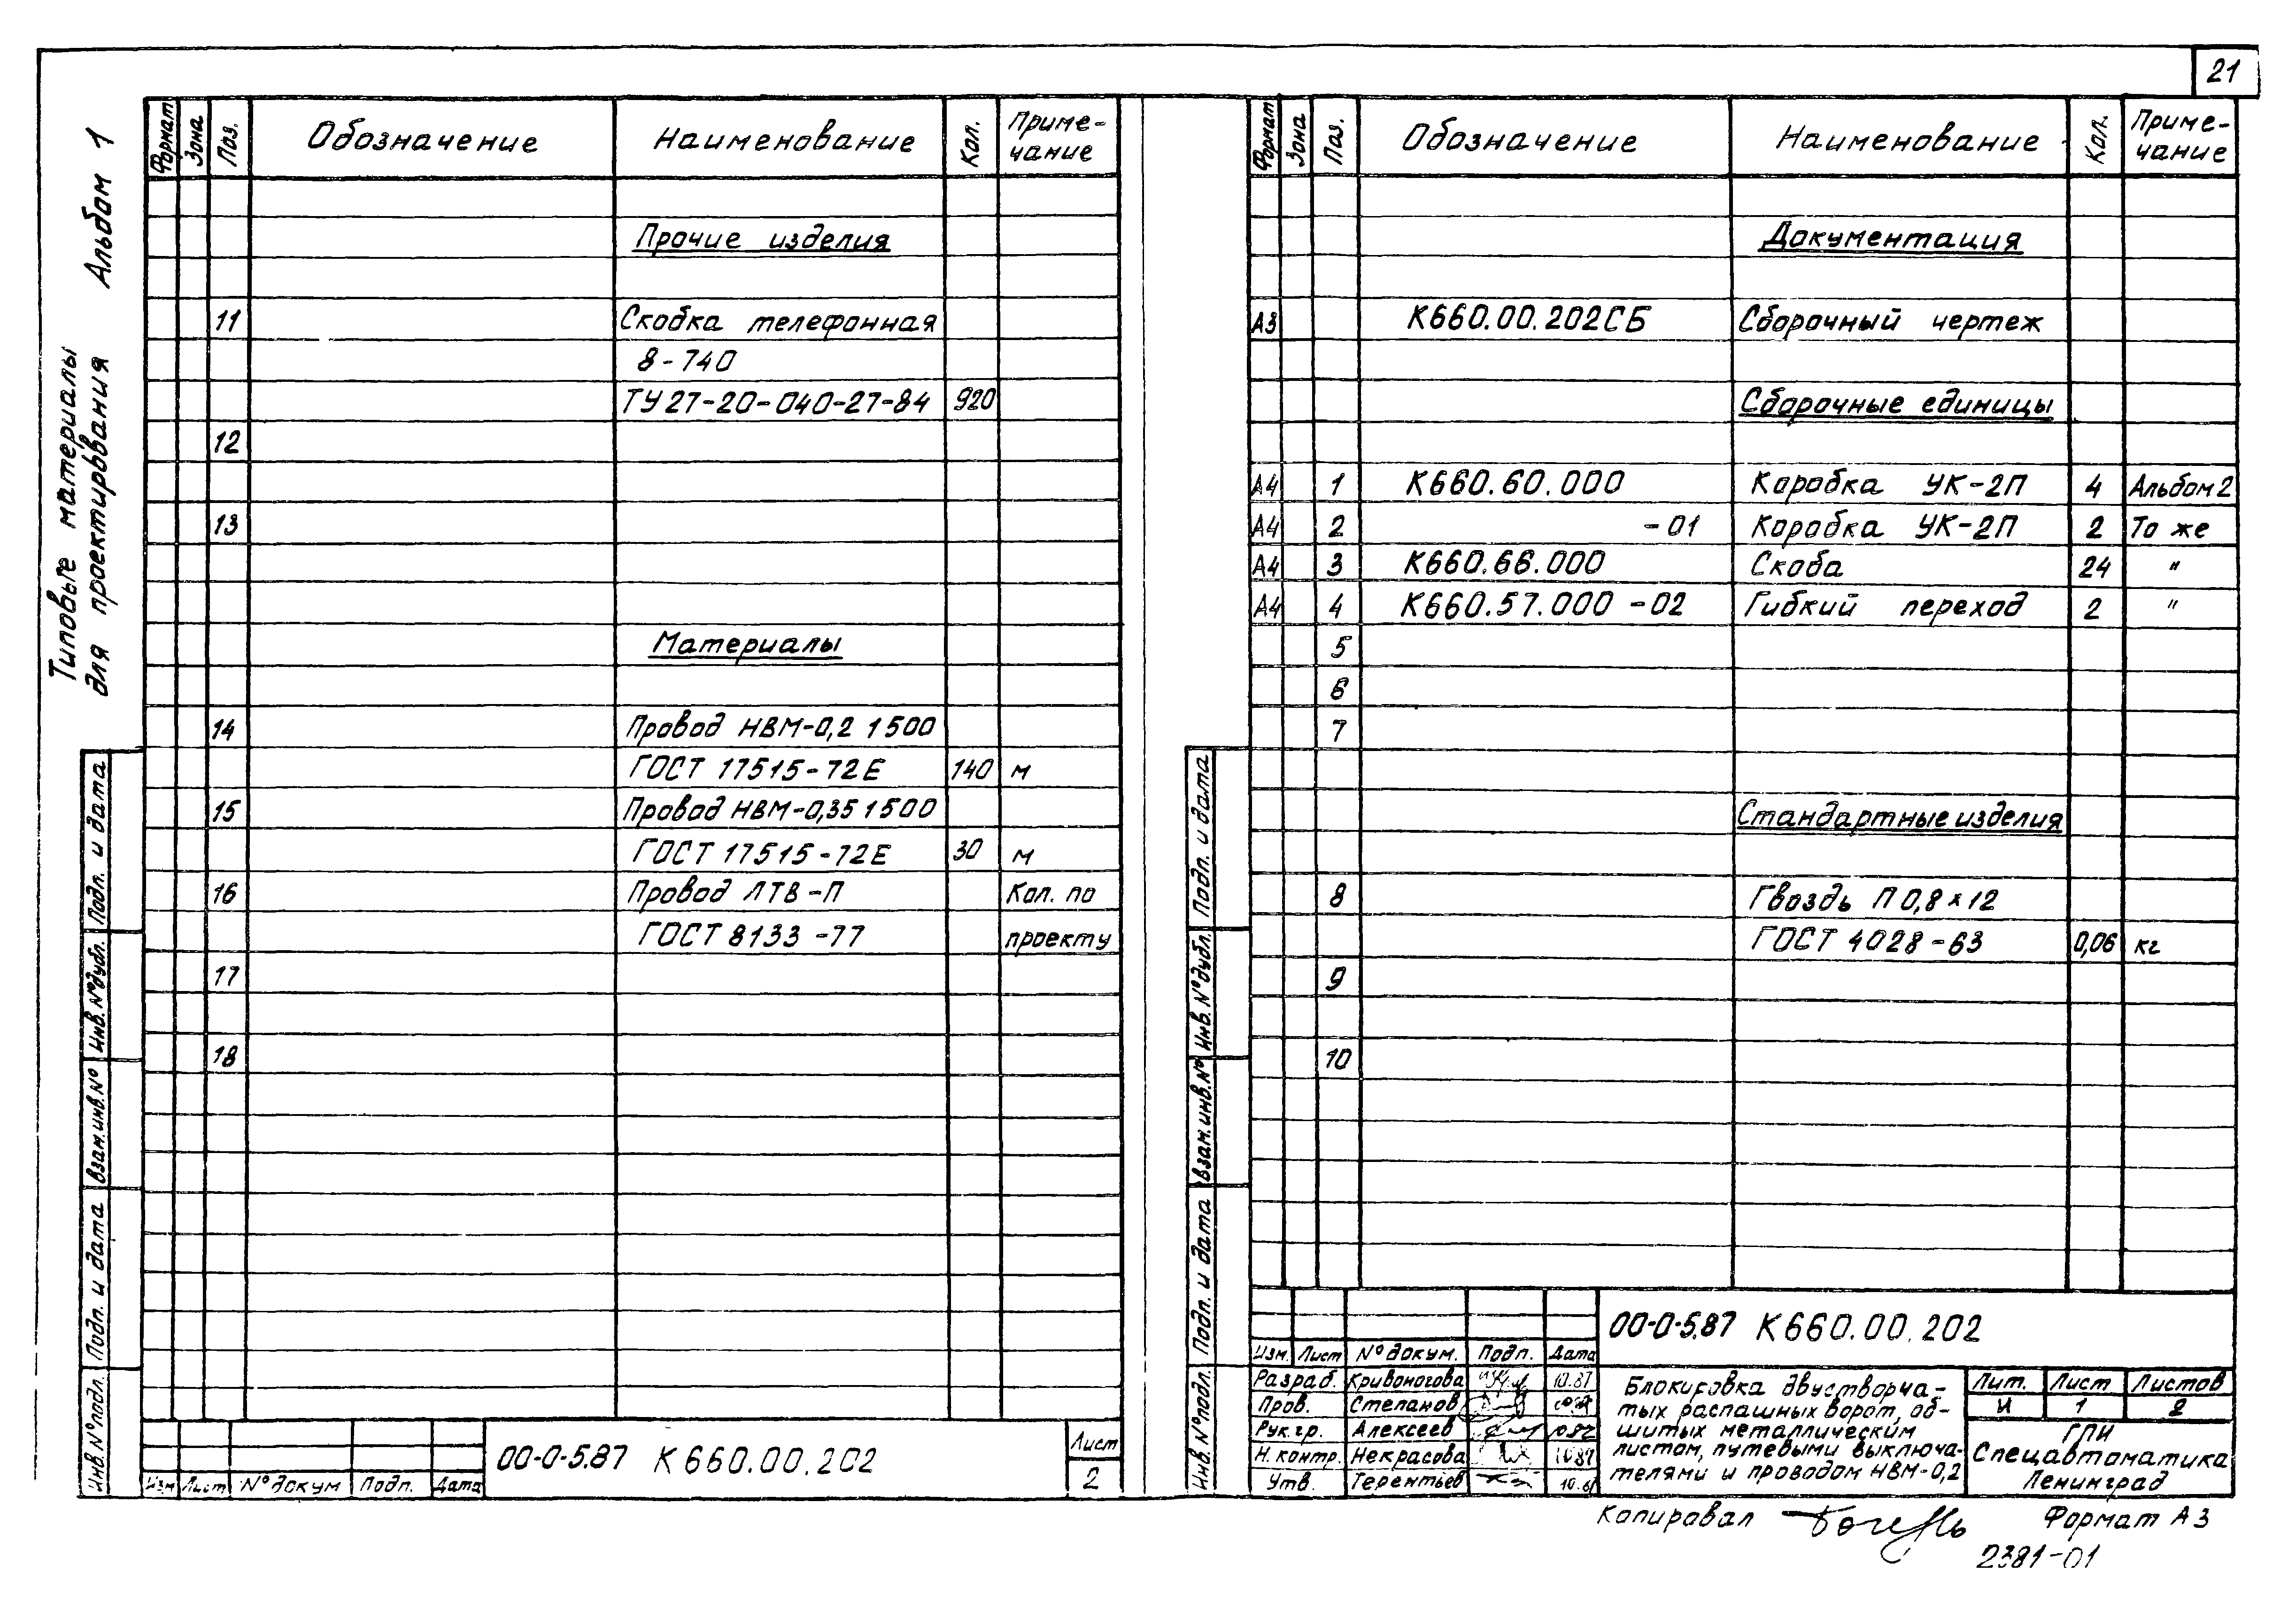 21
Типовые материалы
для проектирования Альбом 1
Формат Зона Поз. Обозначение Наименование Кол. Приме-
чание
Прочие изделия
11 Скобка телефонная
8-740
ТУ27-20-040-27-84 920
12
13
Материалы
14 Провод НВМ-0,2 1 500
ГОСТ 17515-72Е 140 м
15 Провод НВМ-0,35 1 500
ГОСТ 17515-72Е 30 м
16 Провод ЛТВ-П Кол. по
ГОСТ 8133-77 проекту
17
18
Подп. и дата
Инв. № дубл.
Взам. инв. №
Подп. и дата
Инв. № подл.
Изм Лист № докум Подп. Дата
00-0-5.87 К660.00.202
Лист
2
Формат Зона Поз. Обозначение Наименование Кол. Приме-
чание
Документация
А3 К660.00.202СБ Сборочный чертеж
Сборочные единицы
А4 1 К660.60.000 Коробка УК-2П 4 Альбом 2
А4 2 -01 Коробка УК-2П 2 То же
А4 3 К660.66.000 Скоба 24 "
А4 4 К660.57.000-02 Гибкий переход 2 "
5
6
7
Стандартные изделия
8 Гвоздь П 0,8×12
ГОСТ 4028-63 0,06 кг
9
10
Подп. и дата
Инв. № дубл.
Взам. инв. №
Подп. и дата
Инв. № подл.
00-0-5.87 К660.00.202
Изм. Лист № докум. Подп. Дата
Разраб. Кривоногова 10.87
Пров. Степанов
Рук.гр. Алексеев
Н. контр. Некрасова
Утв. Терентьев
Блокировка двустворча-
тых распашных ворот, об-
шитых металлическим
листом, путевыми выключа-
телями и проводом НВМ-0,2
Лит. Лист Листов
И 1 2
ГПИ
Спецавтоматика
Ленинград
Копировал Формат А3
2381-01